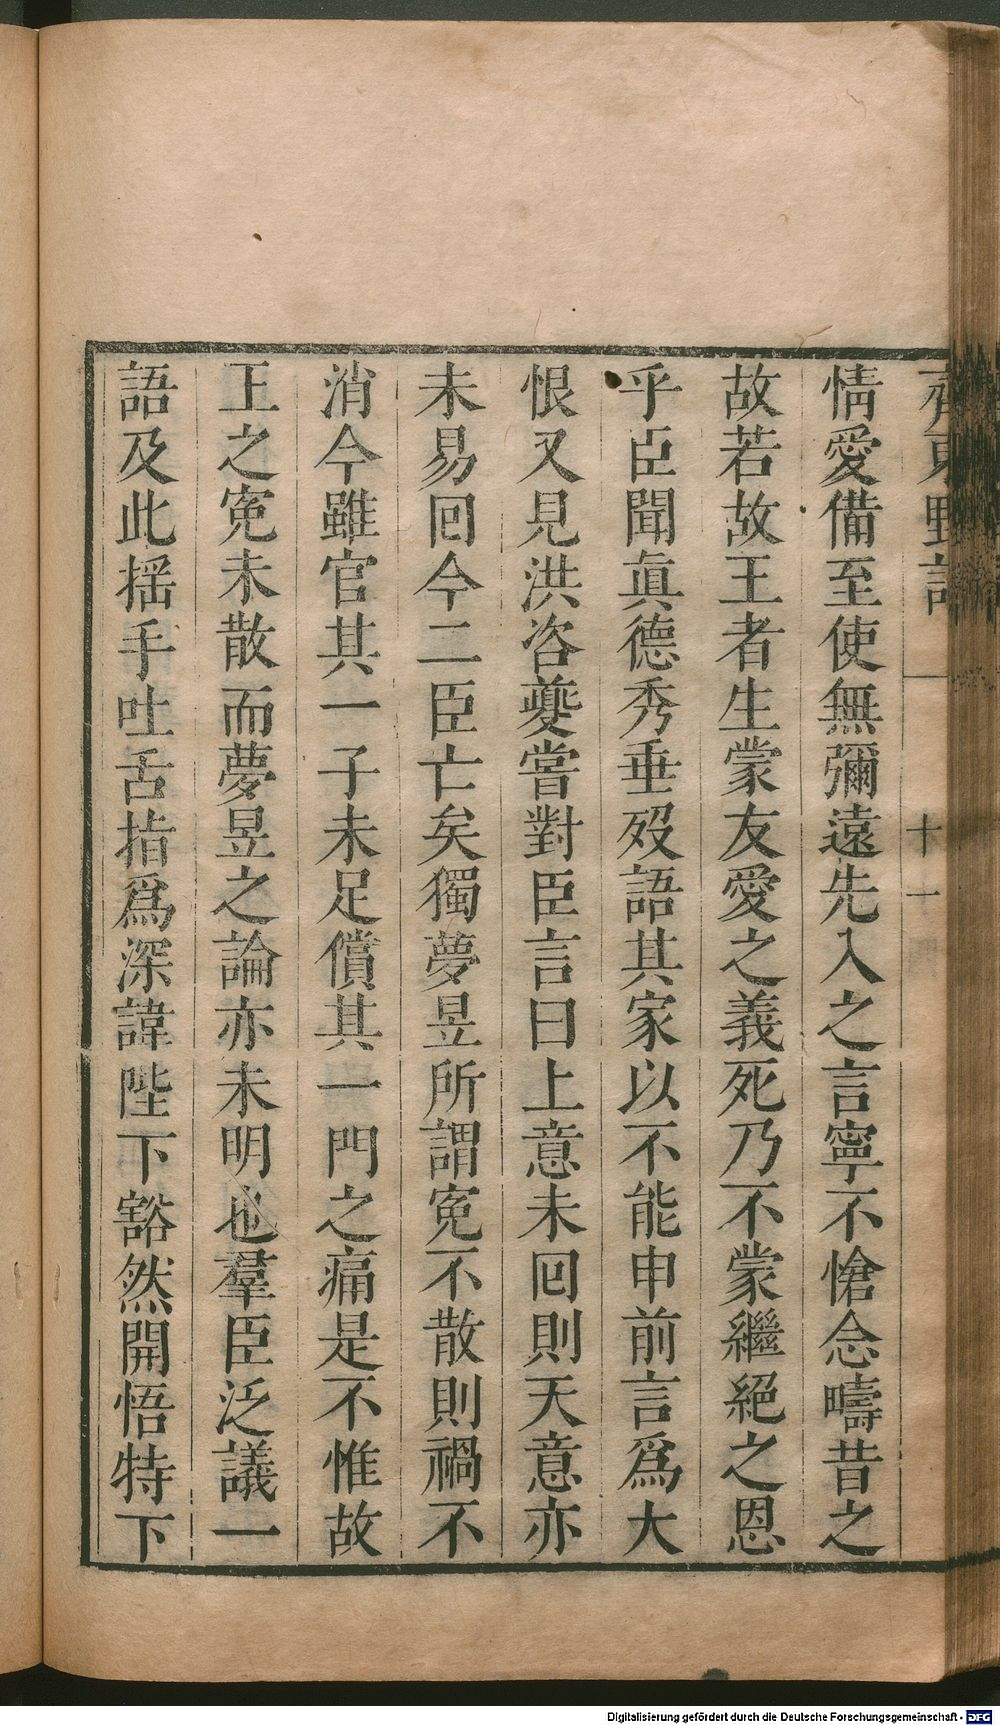 齊東野語
十一
情愛備至使無彌遠先入之言寧不愴念疇昔之
故若故王者生蒙友愛之義死乃不蒙繼絕之恩
乎臣聞眞德秀垂歿語其家以不能申前言爲大
恨又見洪咨夔嘗對臣言曰上意未回則天意亦
未易回今二臣亡矣獨夢昱所謂寃不散則禍不
消今雖官其一子未足償其一門之痛是不惟故
王之寃未散而夢昱之論亦未明也羣臣泛議一
語及此揺手吐舌指爲深諱陛下豁然開悟特下
Digitalisierung gefördert durch die Deutsche Forschungsgemeinschaft - DFG